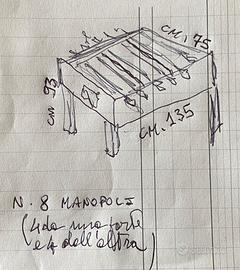 cm. 75
cm 93
cm. 135
N. 8 MANOPOLE
(4 da una parte
e 4 dall'altra)